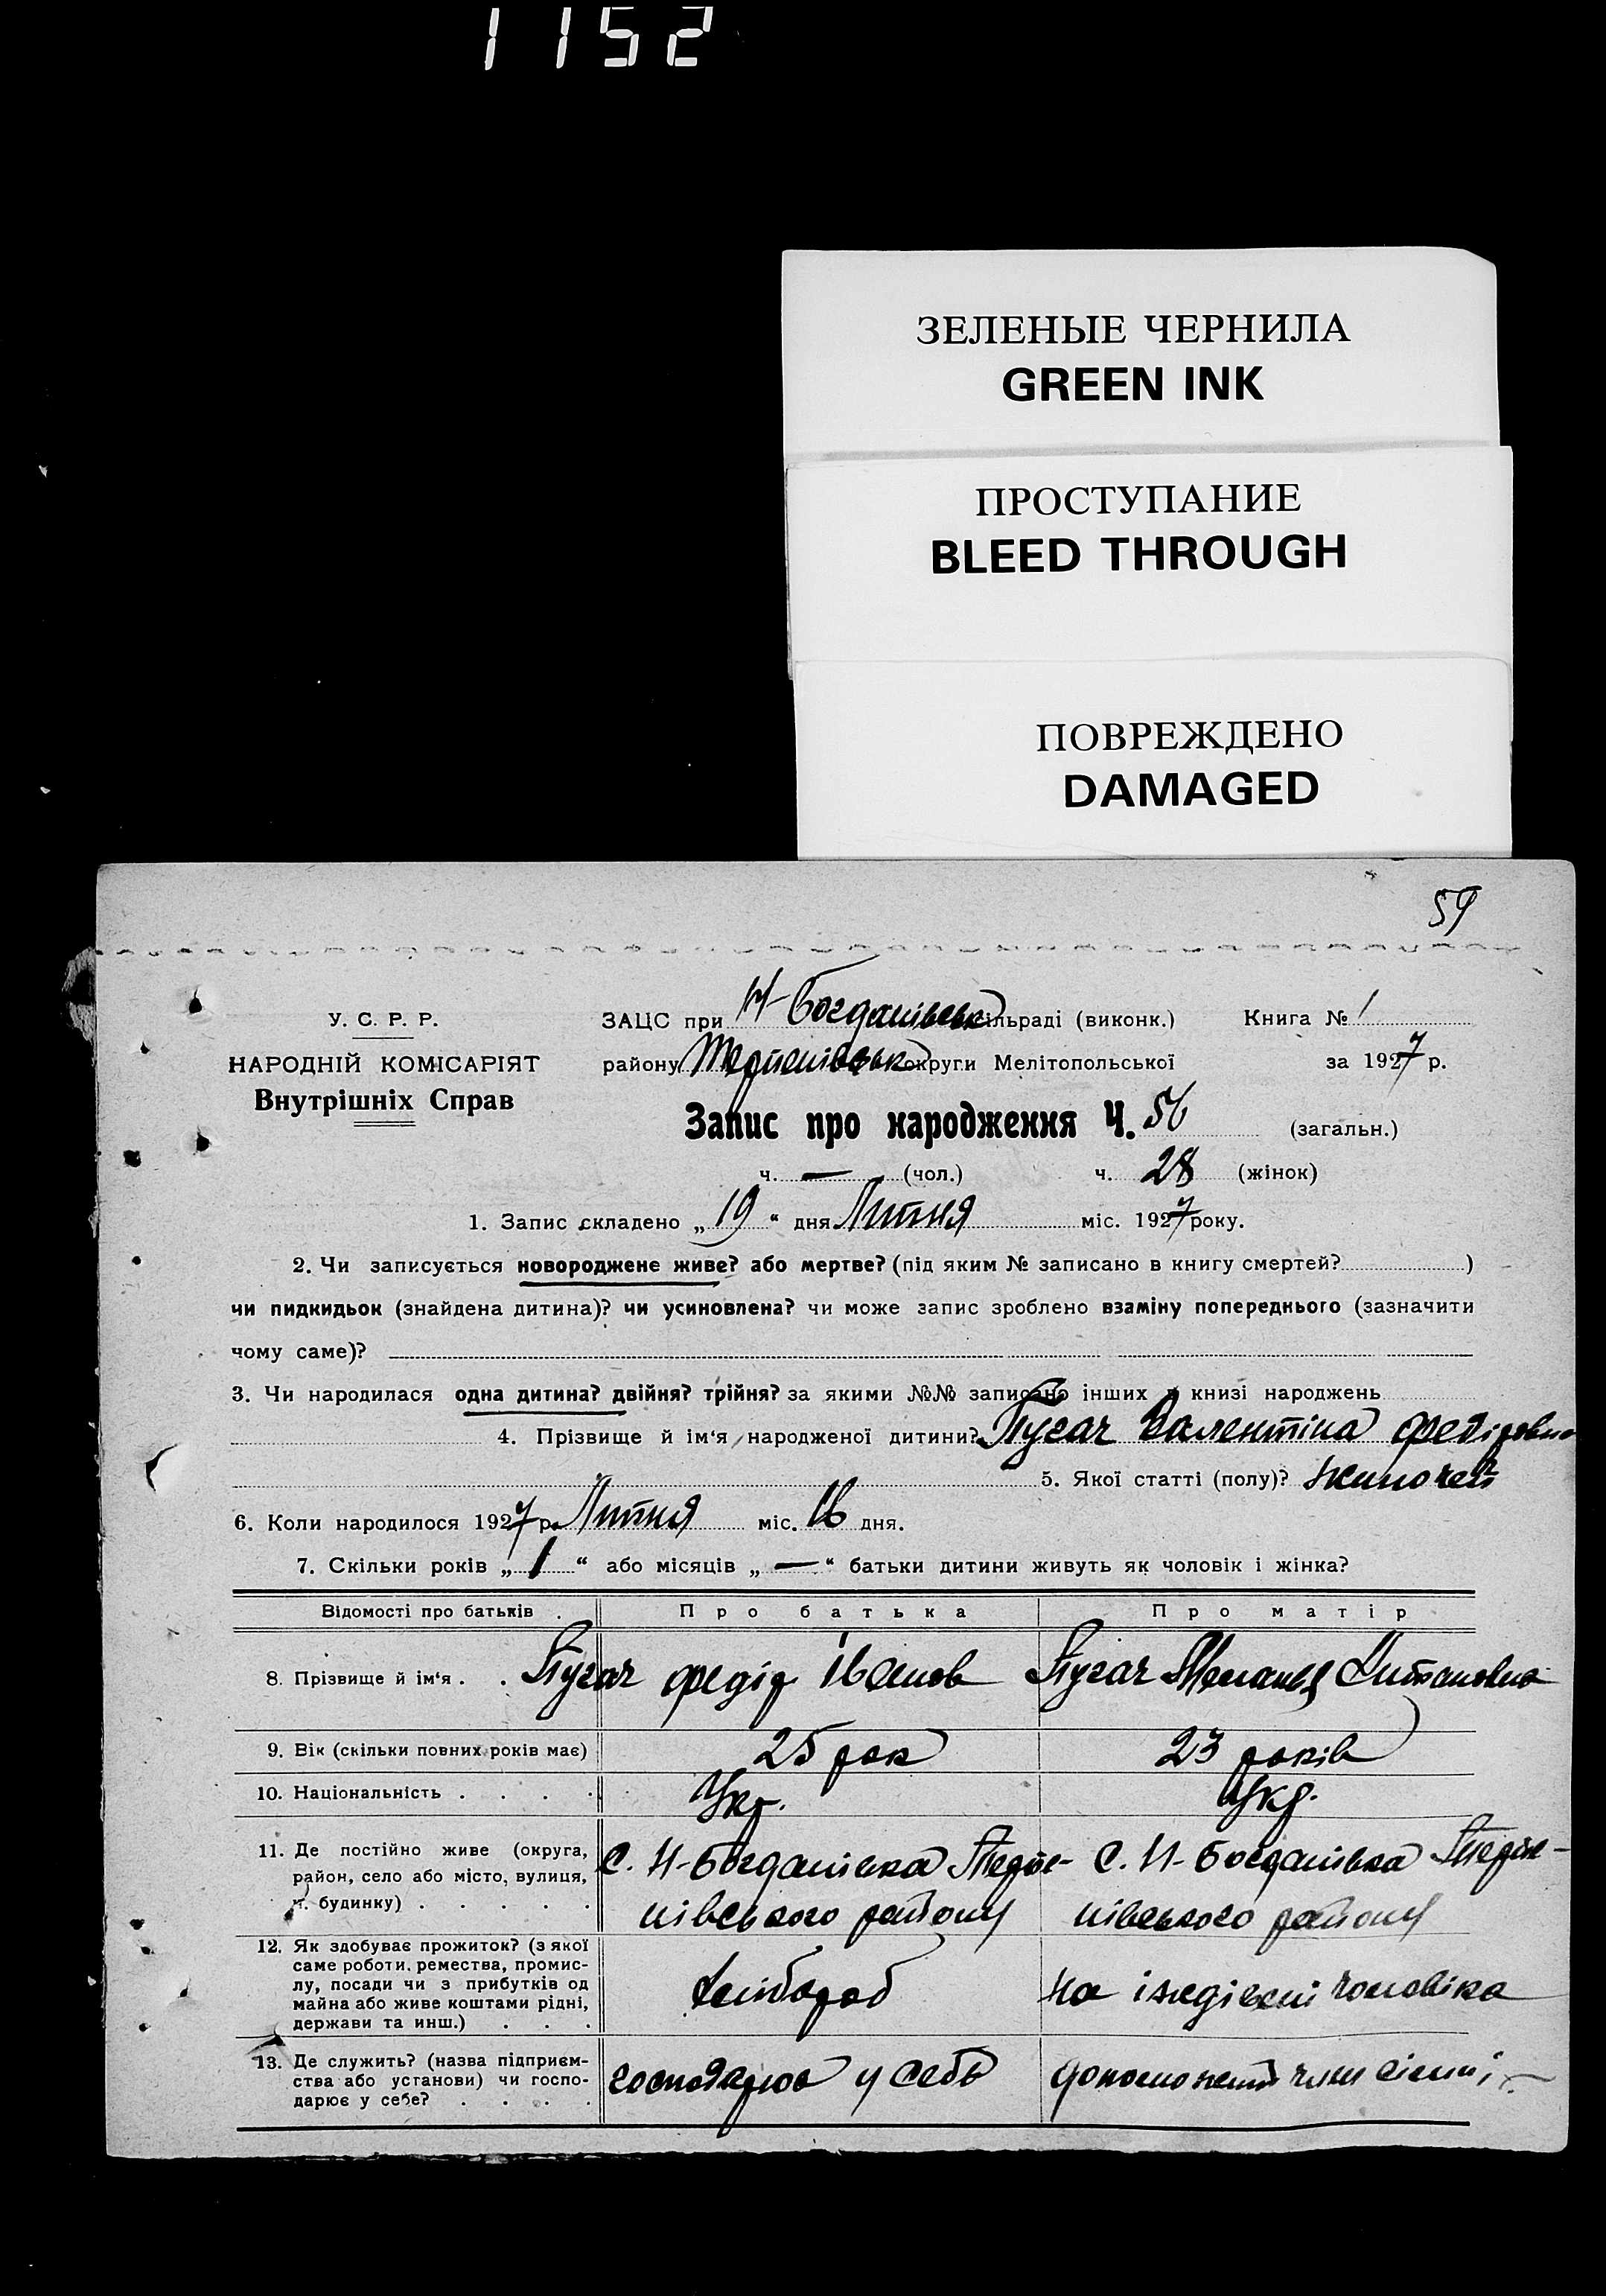 1152
ЗЕЛЕНЫЕ ЧЕРНИЛА
GREEN INK
ПРОСТУПАНИЕ
BLEED THROUGH
ПОВРЕЖДЕНО
DAMAGED
59
У. С. Р. Р.
НАРОДНІЙ КОМІСАРІЯТ
Внутрішніх Справ
ЗАЦС при Н-Богданівськ сільраді (виконк.) Книга № 1
району округи Мелітопольської за 1927 р.
Запис про народження Ч. 56 (загальн.)
ч. — (чол.) ч. 28 (жінок)
1. Запис складено „19“ дня Липня міс. 1927 року.
2. Чи записується новороджене живе? або мертве? (під яким № записано в книгу смертей? )
чи пидкидьок (знайдена дитина)? чи усиновлена? чи може запис зроблено взаміну попереднього (зазначити
чому саме)?
3. Чи народилася одна дитина? двійня? трійня? за якими №№ записано інших в книзі народжень
4. Прізвище й ім‘я народженої дитини? Пугач Валентіна Федіровна
5. Якої статті (полу)? жіночей
6. Коли народилося 1927 р. Липня міс. 16 дня.
7. Скільки років „1“ або місяців „—“ батьки дитини живуть як чоловік і жінка?
Відомості про батьків Про батька Про матір
8. Прізвище й ім‘я . . Пугач Федір Іванов Пугач
9. Вік (скільки повних років має) 25 рок 23 років
10. Національність . . . . Укр. Укр.
11. Де постійно живе (округа,
район, село або місто, вулиця,
ч. будинку) . . . . .
С. Н-Богданівка Терпе- С. Н-Богданівка Терпе-
нівського району нівського району
12. Як здобуває прожиток? (з якої
саме роботи, ремества, промис-
лу, посади чи з прибутків од
майна або живе коштами рідні,
держави та инш.) . . .
хлібороб на іждівені чоловіка
13. Де служить? (назва підприєм-
ства або установи) чи госпо-
дарює у себе? . . . .
господарює у себе член сімні